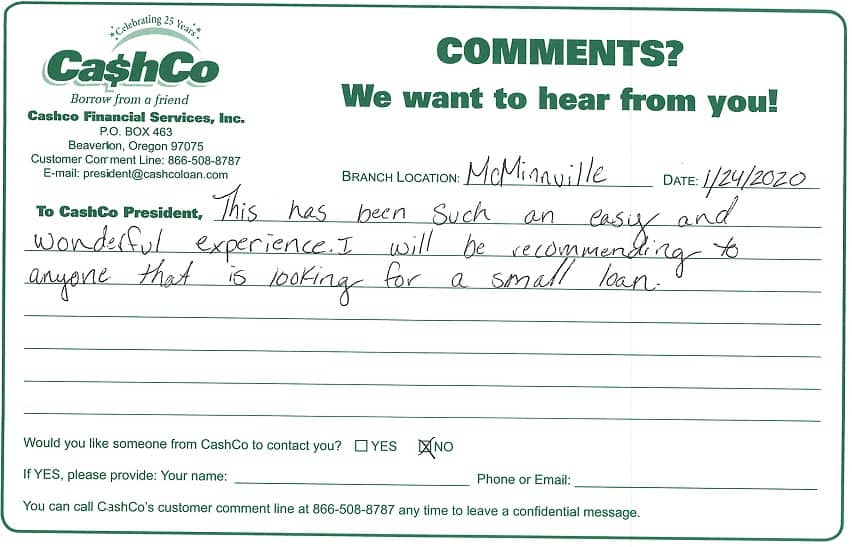 Celebrating 25 Years
Ca$hCo
Borrow from a friend
Cashco Financial Services, Inc.
P.O. BOX 463
Beaverton, Oregon 97075
Customer Comment Line: 866-508-8787
E-mail: president@cashcoloan.com
COMMENTS?
We want to hear from you!
BRANCH LOCATION: McMinnville DATE: 1/24/2020
TO CASHCO PRESIDENT, This has been such an easy and
wonderful experience. I will be recommending to
anyone that is looking for a small loan.
Would you like someone from CashCo to contact you? ☐ YES ☒ NO
If YES, please provide: Your name: Phone or Email:
You can call CashCo's customer comment line at 866-508-8787 any time to leave a confidential message.